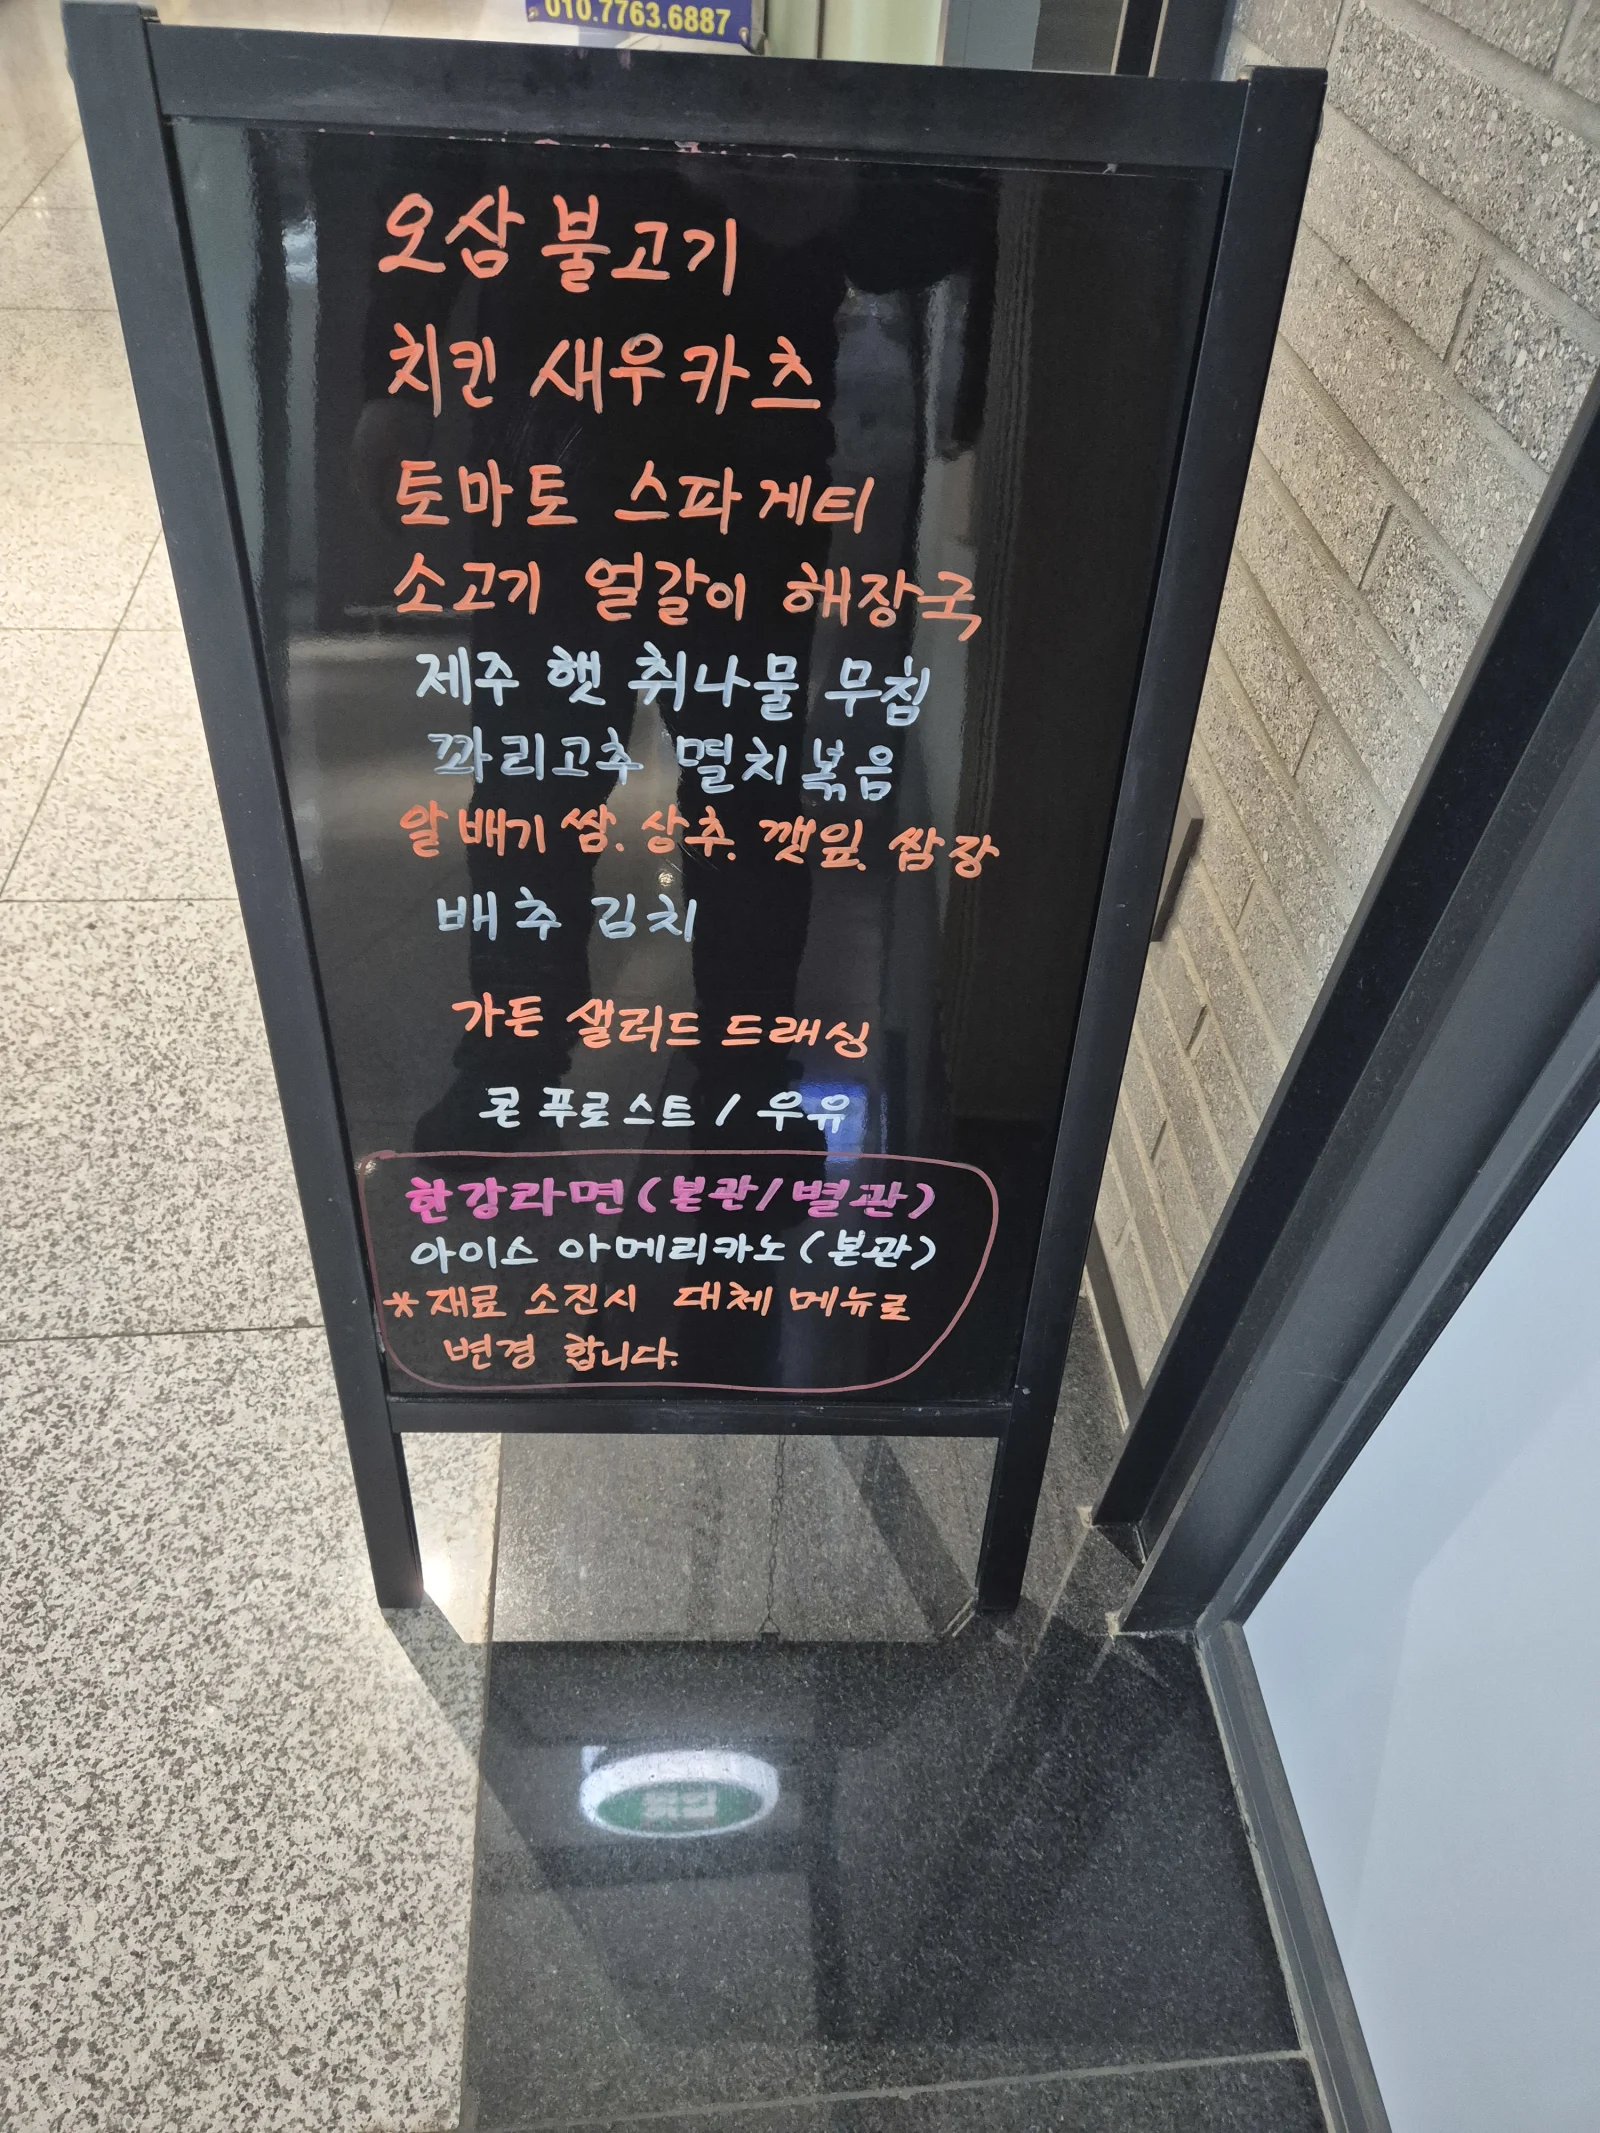 010.7763.6887
오삼 불고기
치킨 새우카츠
토마토 스파게티
소고기 얼갈이 해장국
제주 햇 취나물 무침
꽈리고추 멸치볶음
알배기 쌈. 상추. 깻잎. 쌈장
배추 김치
가든 샐러드 드래싱
콘 푸로스트 / 우유
한강라면 (본관/별관)
아이스 아메리카노 (본관)
* 재료 소진시 대체 메뉴로
변경 합니다.